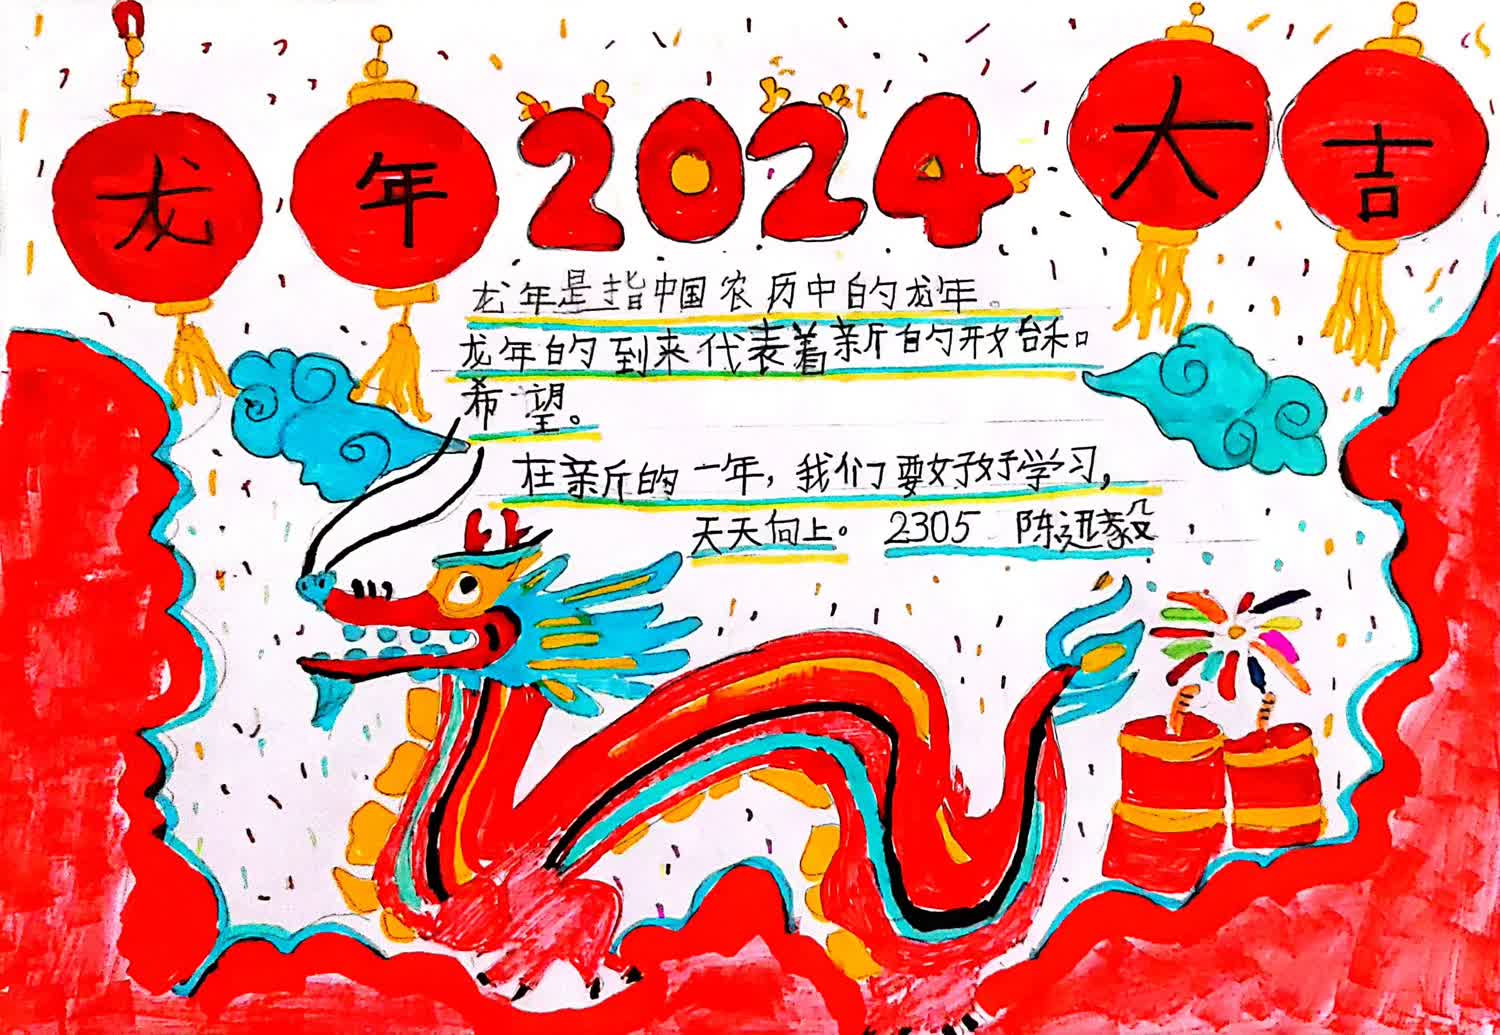 龙年2024大吉
龙年是指中国农历中的龙年。
龙年的到来代表着新的开始和
希望。
在新的一年,我们要好好学习,
天天向上。 2305 陈迅毅